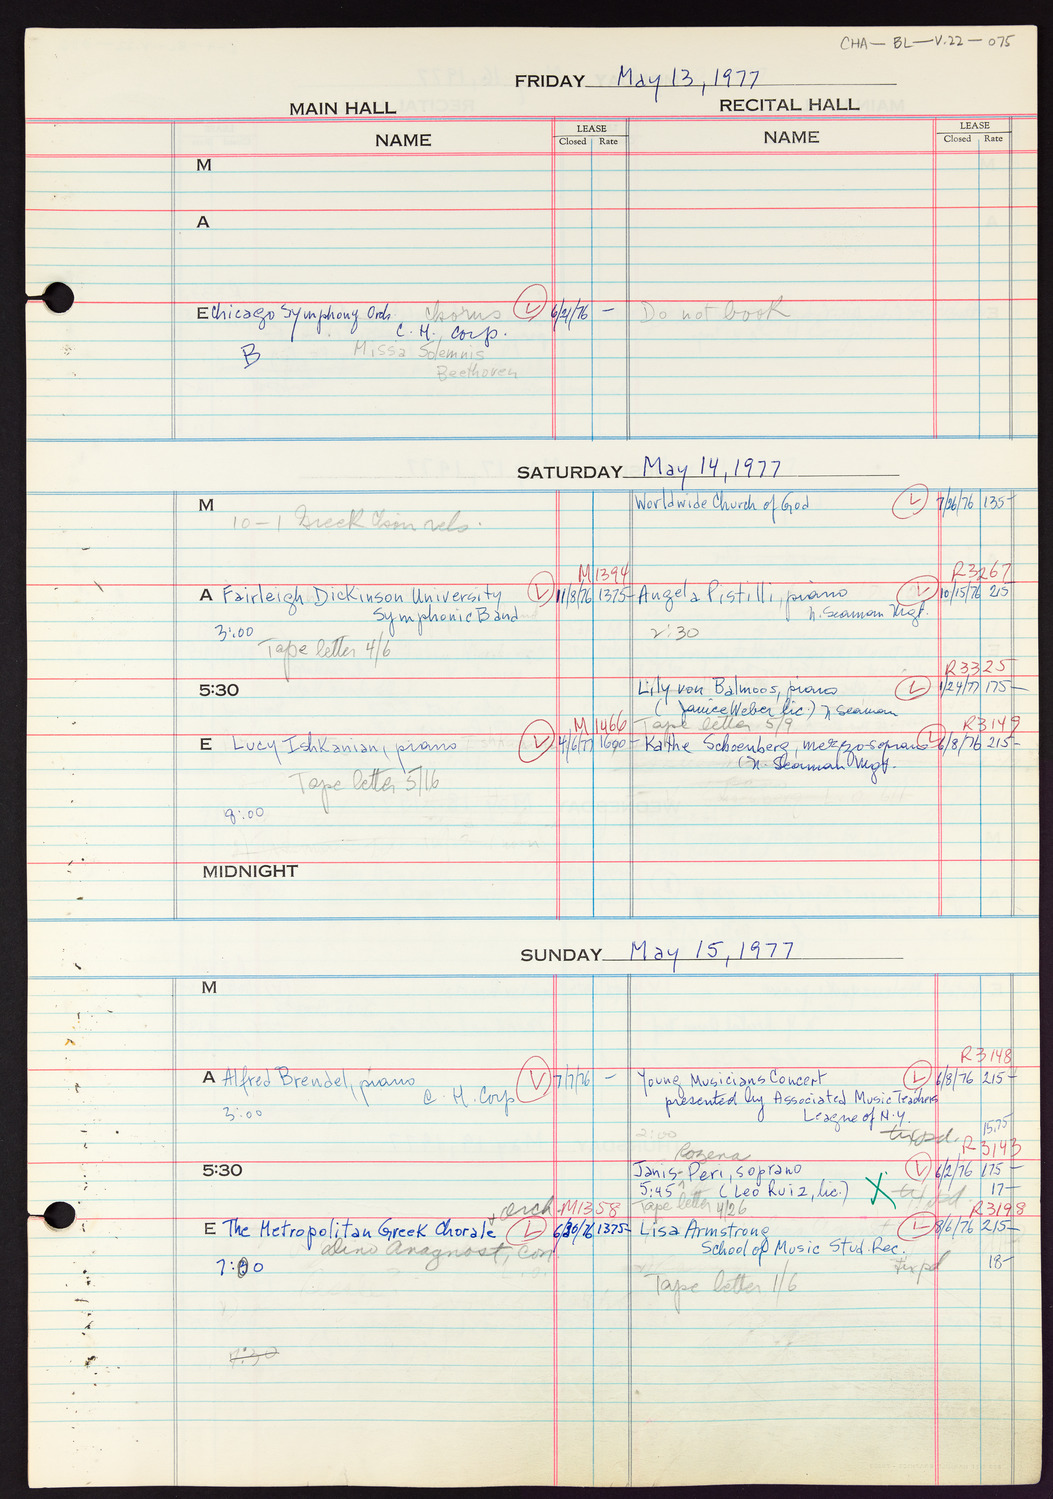 CHA-BL-V.22-075
FRIDAY May 13, 1977
MAIN HALL
RECITAL HALL
NAME
LEASE
Closed Rate
NAME
LEASE
Closed Rate
M
A
E Chicago Symphony Orch. Chorus L 6/21/76 —
C. H. Corp.
B
Missa Solemnis
Beethoven
Do not book
SATURDAY May 14, 1977
M
10-1 Greek Chor rels.
Worldwide Church of God L 7/26/76 135-
M1394
A Fairleigh Dickinson University L 11/8/76 1375-
Symphonic Band
3:00
Tape letter 4/6
R3267
Angela Pistilli, piano L 10/15/76 215
N. Seaman Mgt.
2:30
5:30
R3325
Lily von Balmoos, piano L 1/24/77 175-
(Janice Weber lic.) N Seaman
Tape letter 5/9
M1466
E Lucy Ishkanian, piano L 4/6/77 1690-
Tape letter 5/16
8:00
R3149
Kathe Schoenberg, mezzo-soprano L 6/8/76 215-
(N. Seaman Mgt.
MIDNIGHT
SUNDAY May 15, 1977
M
A Alfred Brendel, piano L 7/7/76 —
C. H. Corp
3:00
R3148
Young Musicians Concert L 6/8/76 215-
presented by Associated Music Teachers
League of N.Y.
tixpd. 15.75
2:00
5:30
R3143
Rozena
Janis-Peri, soprano L 6/2/76 175-
5:45 (Leo Ruiz, lic.) X 17-
Tape letter 4/26
+ orch M1358
E The Metropolitan Greek Chorale L 6/30/76 1375-
Dino Anagnost, con
7:00
7:30
R3198
Lisa Armstrong L 8/6/76 215-
School of Music Stud. Rec.
tixpd 18-
Tape letter 1/6